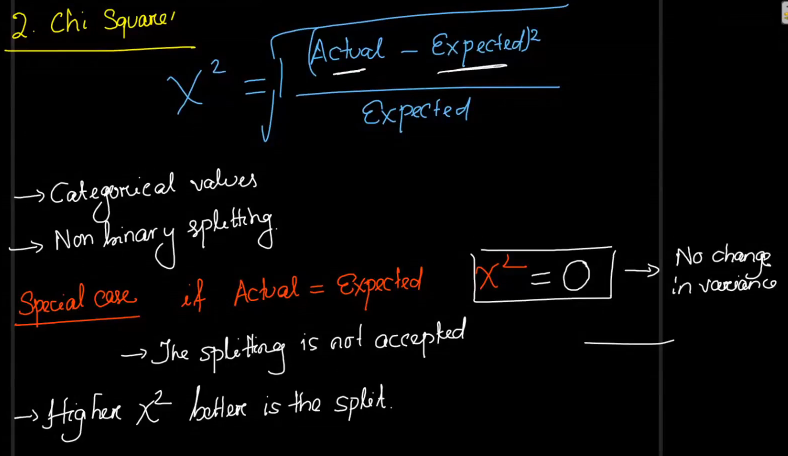 2. Chi Square,
X² = √((Actual – Expected)² / Expected)
→ Categorical values
→ Non binary splitting.
Special case if Actual = Expected
X² = 0 → No change in variance
→ The splitting is not accepted
→ Higher X² better is the split.